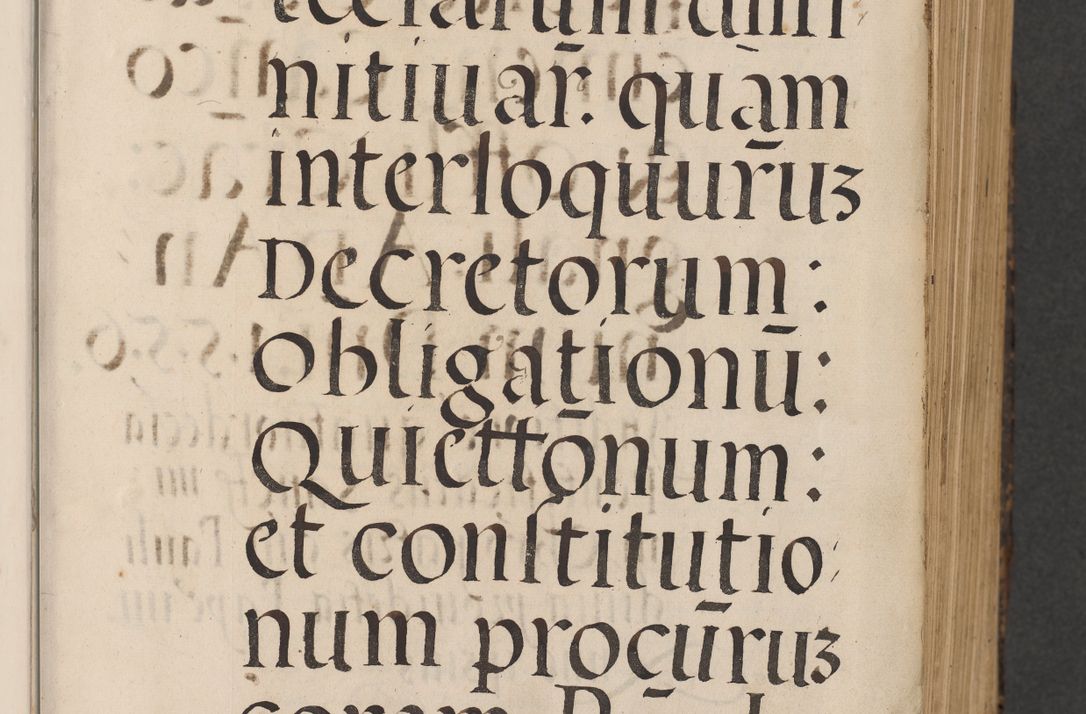 nitiuar̄. quam
interloquuru̅ꝫ
Decretorum :
Obligationū:
Quiettōnum :
et conſtitutio
num procuru̅ꝫ